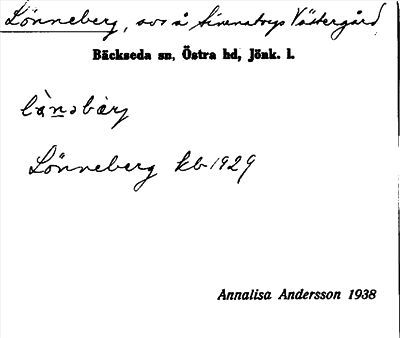 Lönneberg, avs å Simmatorps Västergård
Bäckseda sn, Östra hd, Jönk. l.
lὰnəbærj
Lönneberg kb 1929
Annalisa Andersson 1938